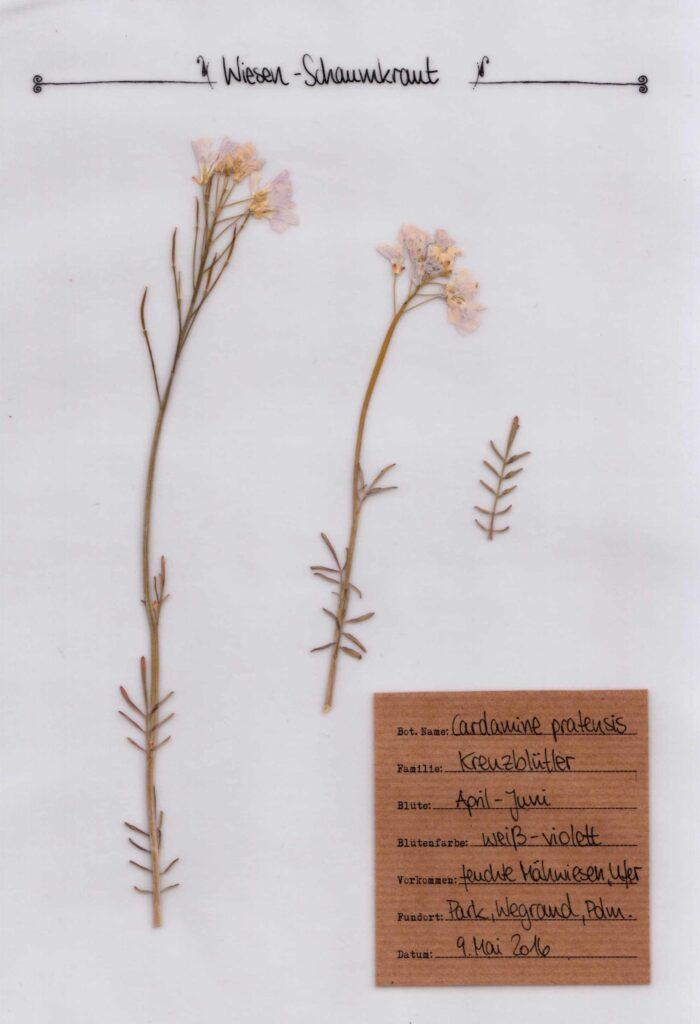 Wiesen-Schaumkraut
Bot. Name: Cardamine pratensis
Familie: Kreuzblütler
Blüte: April-Juni
Blütenfarbe: weiß-violett
Vorkommen: feuchte Mähwiesen, Ufer
Fundort: Park, Wegrand, Pdm.
Datum: 9. Mai 2016